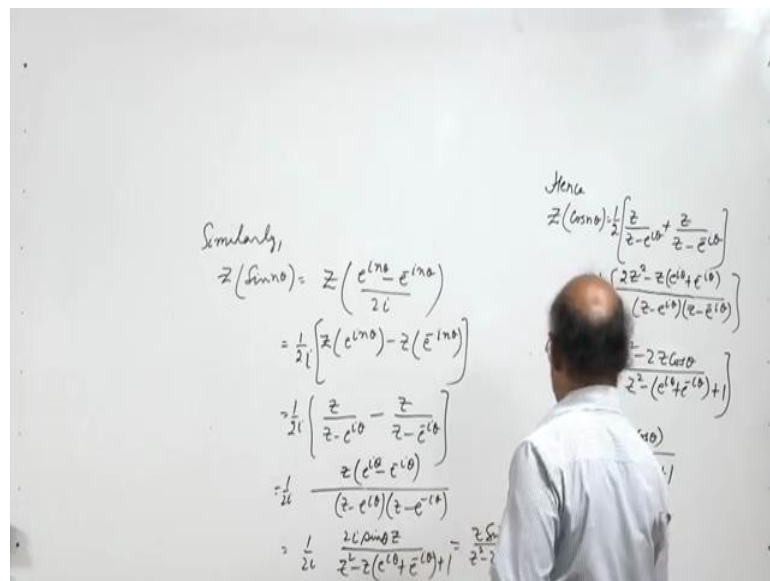 Similarly,
Z(Sin nθ) = Z((e^{inθ} - e^{-inθ})/2i)
= 1/2i [Z(e^{inθ}) - Z(e^{-inθ})]
= 1/2i [z/(z-e^{iθ}) - z/(z-e^{-iθ})]
= 1/2i z(e^{iθ} - e^{-iθ})/((z-e^{iθ})(z-e^{-iθ}))
= 1/2i 2i sinθ z/(z²-z(e^{iθ}+e^{-iθ})+1) =
Hence
Z(Cos nθ) = 1/2 [z/(z-e^{iθ}) + z/(z-e^{-iθ})]
[2z²-z(e^{iθ}+e^{-iθ})/(z-e^{iθ})(z-e^{-iθ})]
-2z Cosθ/z²-(e^{iθ}+e^{-iθ})+1]